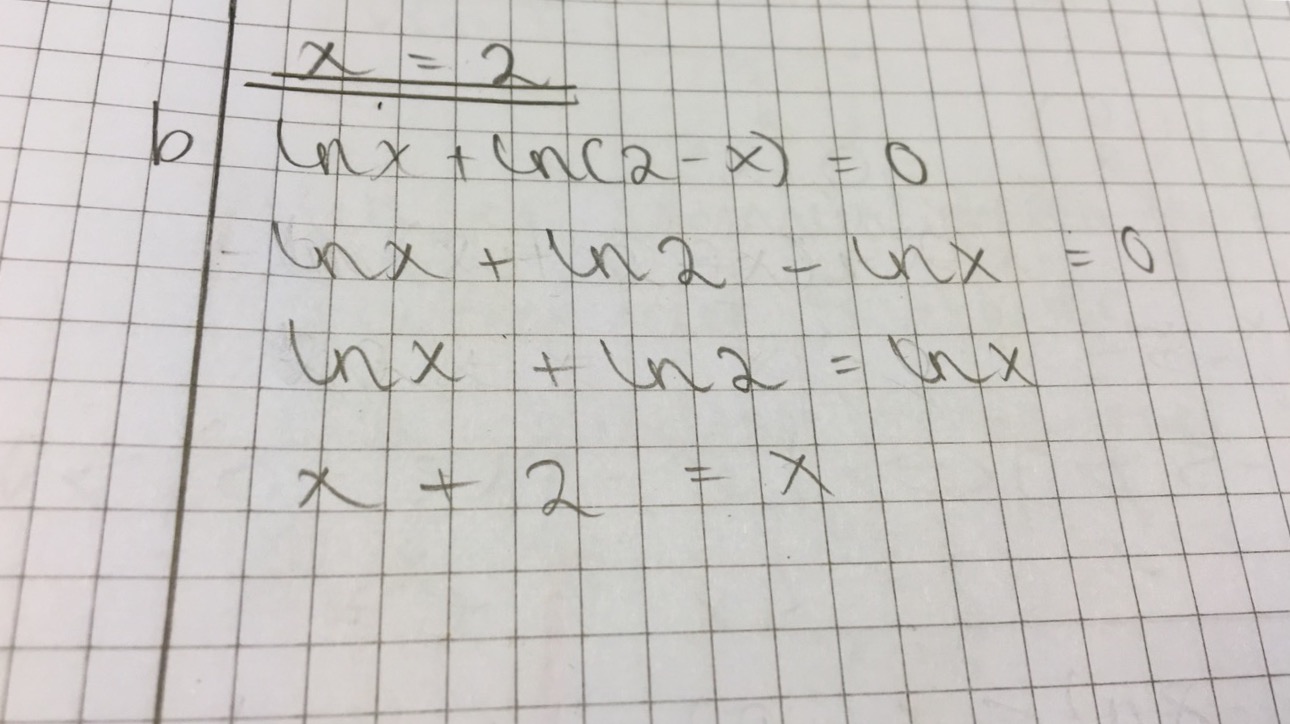 x = 2
b ln x + ln(2 - x) = 0
ln x + ln 2 - ln x = 0
ln x + ln 2 = ln x
x + 2 = x